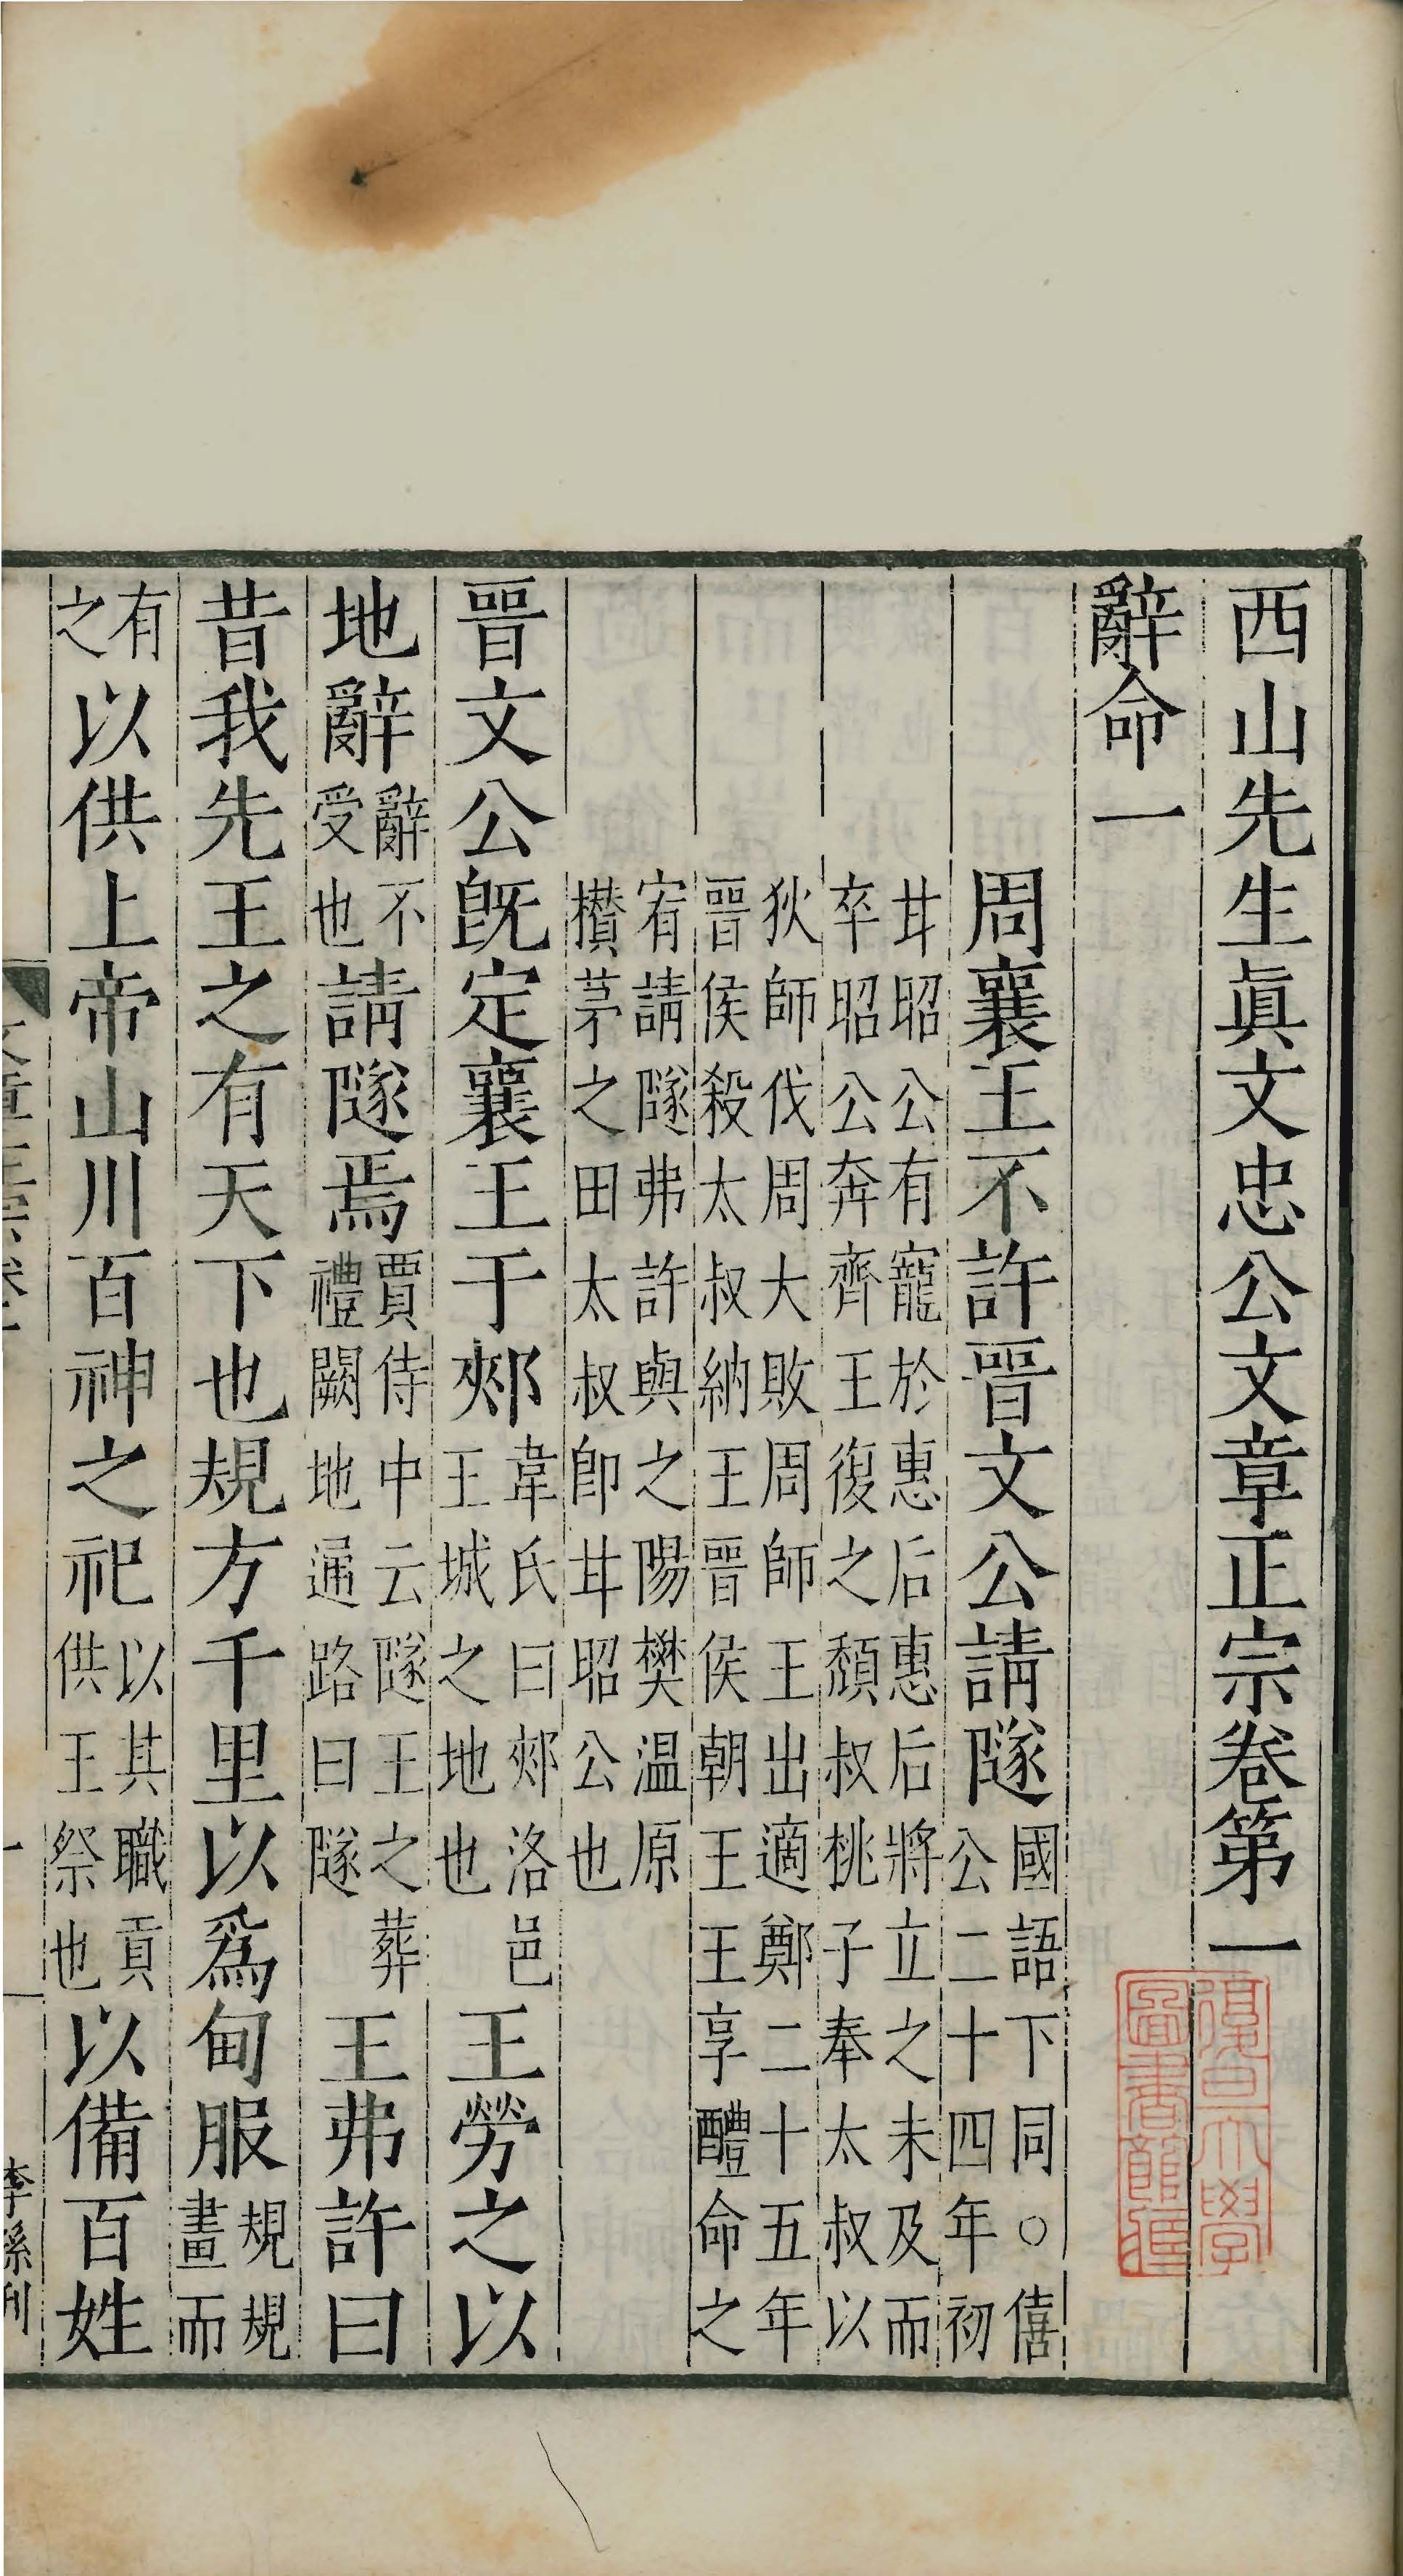 西山先生眞文忠公文章正宗卷第一
辭命一
周襄王不許晉文公請隧國語下同○僖公二十四年初
甘昭公有寵於惠后惠后將立之未及而卒昭公奔齊王復之頹叔桃子奉太叔以
狄師伐周大敗周師王出適鄭二十五年晉侯殺太叔納王晉侯朝王王享醴命之
宥請隧弗許與之陽樊温原攢茅之田太叔卽甘昭公也
晉文公旣定襄王于郟韋氏曰郟洛邑王城之地也王勞之以
地辭辭不受也請隧焉賈侍中云隧王之葬禮闕地通路曰隧王弗許曰
昔我先王之有天下也規方千里以爲甸服規規畫而
有之以供上帝山川百神之祀以其職貢供王祭也以備百姓
復旦大學
圖書館藏